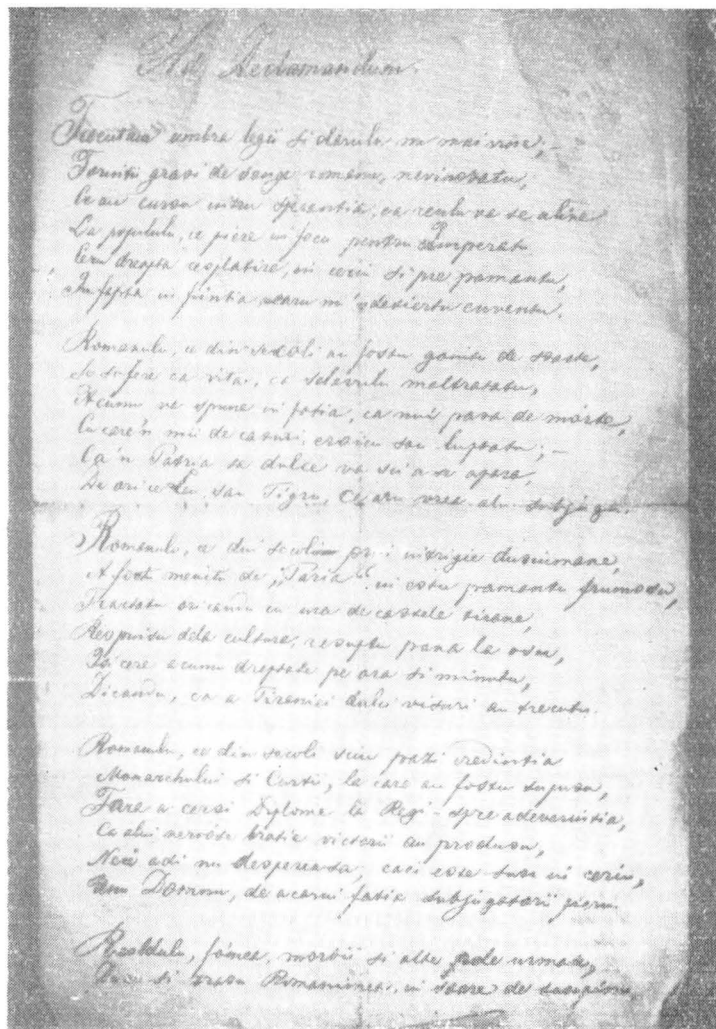 Ad Reclamandum.
umbra legii si darulu nu mai vine; –
gravi de sange romanu, nevinovatu,
Ce au cursu intru sperantia, ca reulu va se aline
La populul, ce piere in focu pentru Imperatu
Ceru drepta resplatire, in ceriu si pre pamantu,
in fiintia desiertu cuventu.
Romanulu, ce din secoli au fostu gonitu de soarte,
Se sufere ca vita, ca sclavulu maltratatu,
Acumu va spune in fatia, ca nui pasa de mórte,
Cu care'n mii de casuri, eroicu sau luptatu; –
Ca'n Patria sa dulce va sci a se apara,
De orice Leu, sau Tigru, ce aru vrea alu subjuga.
Romanulu, ce din secolii prin intrigie dusimane,
A fost menitu de "Paria" in estu pamantu frumosu,
Tractatu ori candu cu ura de castele tirane,
Respinsu dela cultura, resuptu pana la osu,
Isi cere acumu dreptate pe ora si minutu,
Dicandu, ca a Tiraniei dulci visuri au trecutu.
Romanulu, ce din secoli sciu pazi credintia
Monarchului si Curtii, la care au fostu supusu,
Fara a cersi Diplome la Regi – spre adeverintia,
Ca alui nervóse bratie victorii au produsu,
Nici adi nu despereaza, caci este susu in ceriu,
Unu Domnu, de acarui fatia subjugatorii pieru.
Resbelulu, fómea, morbii si alte rele urmate,
si vrasu in stare de